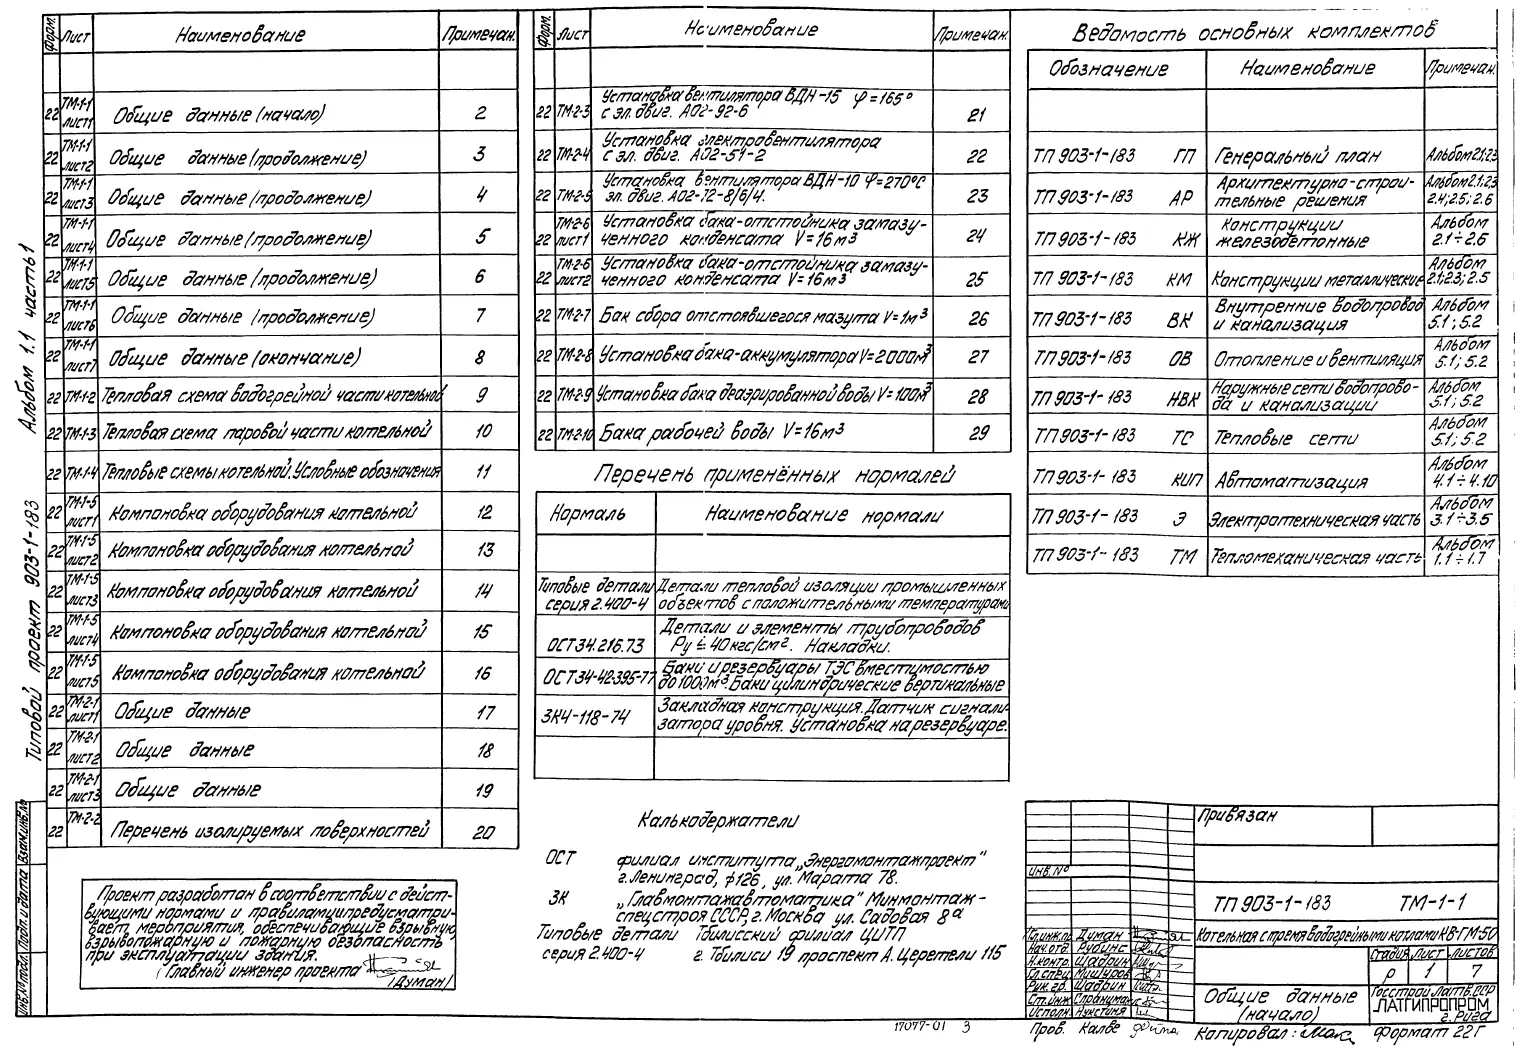 Типовой проект 903-1-183 Альбом 1.1 часть 1
Форм. Лист Наименование Примечан.
22 ТМ-1-1 лист1 Общие данные (начало) 2
22 ТМ-1-1 лист2 Общие данные (продолжение) 3
22 ТМ-1-1 лист3 Общие данные (продолжение) 4
22 ТМ-1-1 лист4 Общие данные (продолжение) 5
22 ТМ-1-1 лист5 Общие данные (продолжение) 6
22 ТМ-1-1 лист6 Общие данные (продолжение) 7
22 ТМ-1-1 лист7 Общие данные (окончание) 8
22 ТМ-1-2 Тепловая схема водогрейной части котельной 9
22 ТМ-1-3 Тепловая схема паровой части котельной 10
22 ТМ-1-4 Тепловые схемы котельной. Условные обозначения 11
22 ТМ-1-5 лист1 Компоновка оборудования котельной 12
22 ТМ-1-5 лист2 Компоновка оборудования котельной 13
22 ТМ-1-5 лист3 Компоновка оборудования котельной 14
22 ТМ-1-5 лист4 Компоновка оборудования котельной 15
22 ТМ-1-5 лист5 Компоновка оборудования котельной 16
22 ТМ-2-1 лист1 Общие данные 17
22 ТМ-2-1 лист2 Общие данные 18
22 ТМ-2-1 лист3 Общие данные 19
22 ТМ-2-2 Перечень изолируемых поверхностей 20
Проект разработан в соответствии с дейст-
вующими нормами и правилами и предусматри-
вает мероприятия, обеспечивающие взрывную,
взрывопожарную и пожарную безопасность
при эксплуатации здания.
Главный инженер проекта
/Думан/
Инв.№подл. Подп. и дата Взам.инв.№
Форм. Лист Наименование Примечан.
22 ТМ-2-3 Установка вентилятора ВДН-15 φ=165°
с эл. двиг. АО2-92-6 21
22 ТМ-2-4 Установка электровентилятора
с эл. двиг. АО2-51-2 22
22 ТМ-2-5 Установка вентилятора ВДН-10 φ=270°С
эл. двиг. АО2-72-8/6/4. 23
22 ТМ-2-6 лист1 Установка бака-отстойника замазу-
ченного конденсата V=16м3 24
22 ТМ-2-6 лист2 Установка бака-отстойника замазу-
ченного конденсата V=16м3 25
22 ТМ-2-7 Бак сбора отстоявшегося мазута V=1м3 26
22 ТМ-2-8 Установка бака-аккумулятора V=2000м3 27
22 ТМ-2-9 Установка бака деаэрированной воды V=100м3 28
22 ТМ-2-10 Бака рабочей воды V=16м3 29
Перечень применённых нормалей
Нормаль Наименование нормали
Типовые детали серия 2.400-4 Детали тепловой изоляции промышленных
объектов с положительными температурами
ОСТ34.216.73 Детали и элементы трубопроводов
Ру ≤ 40 кгс/см2. Накладки.
ОСТ34-42.395-77 Баки и резервуары ТЭС вместимостью
до 1000м3. Баки цилиндрические вертикальные
ЗК4-118-74 Закладная конструкция. Датчик сигнали-
затора уровня. Установка на резервуаре.
Калькодержатели
ОСТ филиал института „Энергомонтажпроект"
г. Ленинград, ф126, ул. Марата 78.
ЗК „Главмонтажавтоматика" Минмонтаж-
спецстроя СССР, г. Москва ул. Садовая 8а
Типовые детали Тбилисский филиал ЦИТП
серия 2.400-4 г. Тбилиси 19 проспект А. Церетели 115
17077-01 3
Ведомость основных комплектов
Обозначение Наименование Примечан.
ТП 903-1-183 ГП Генеральный план Альбом 2.1; 2.3
ТП 903-1-183 АР Архитектурно-строи-
тельные решения Альбом 2.1; 2.3 2.4; 2.5; 2.6
ТП 903-1-183 КЖ Конструкции
железобетонные Альбом 2.1÷2.6
ТП 903-1-183 КМ Конструкции металлические Альбом 2.1; 2.3; 2.5
ТП 903-1-183 ВК Внутренние водопровод
и канализация Альбом 5.1; 5.2
ТП 903-1-183 ОВ Отопление и вентиляция Альбом 5.1; 5.2
ТП 903-1-183 НВК Наружные сети водопрово-
да и канализации Альбом 5.1; 5.2
ТП 903-1-183 ТС Тепловые сети Альбом 5.1; 5.2
ТП 903-1-183 КИП Автоматизация Альбом 4.1÷4.10
ТП 903-1-183 Э Электротехническая часть Альбом 3.1÷3.5
ТП 903-1-183 ТМ Тепломеханическая часть Альбом 1.1÷1.7
Привязан
Инв.№
ТП 903-1-183 ТМ-1-1
Гл.инж.пр. Думан
Нач.отд. Рубинс
Н.контр. Шадрин
Гл.спец. Мишуров
Рук.гр. Шадрин
Ст.инж.
Исполн.
Котельная с тремя водогрейными котлами КВ-ГМ-50
Стадия Лист Листов
Р 1 7
Общие данные
(начало)
Госстрой Латв.ССР
ЛАТГИПРОПРОМ
г. Рига
Пров. Калве
Копировал: Формат 22Г